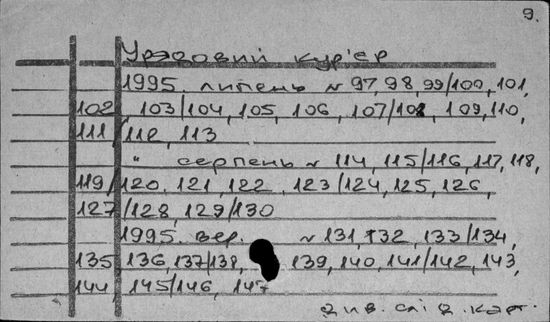 9.
Урядовий кур'єр
1995. липень № 97, 98, 99/100, 101,
102, 103/104, 105, 106, 107/108, 109, 110,
111/112, 113
" серпень № 114, 115/116, 117, 118,
119/120, 121, 122, 123/124, 125, 126,
127/128, 129/130
1995. вер. № 131, 132, 133/134,
135, 136, 137/138, 139, 140, 141/142, 143,
144, 145/146, 147
див. слід. карт.